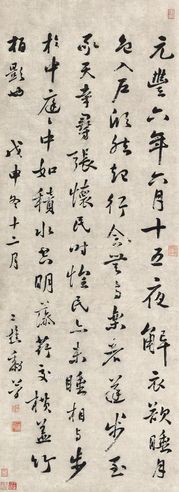 元豐六年六月十五夜解衣欲睡月
色入戶欣然起行念無與樂者遂步至
承天寺尋張懷民時懷民亦未睡相與步
於中庭庭中如積水空明藻荇交橫蓋竹
柏影也 戊申冬十二月 二樵